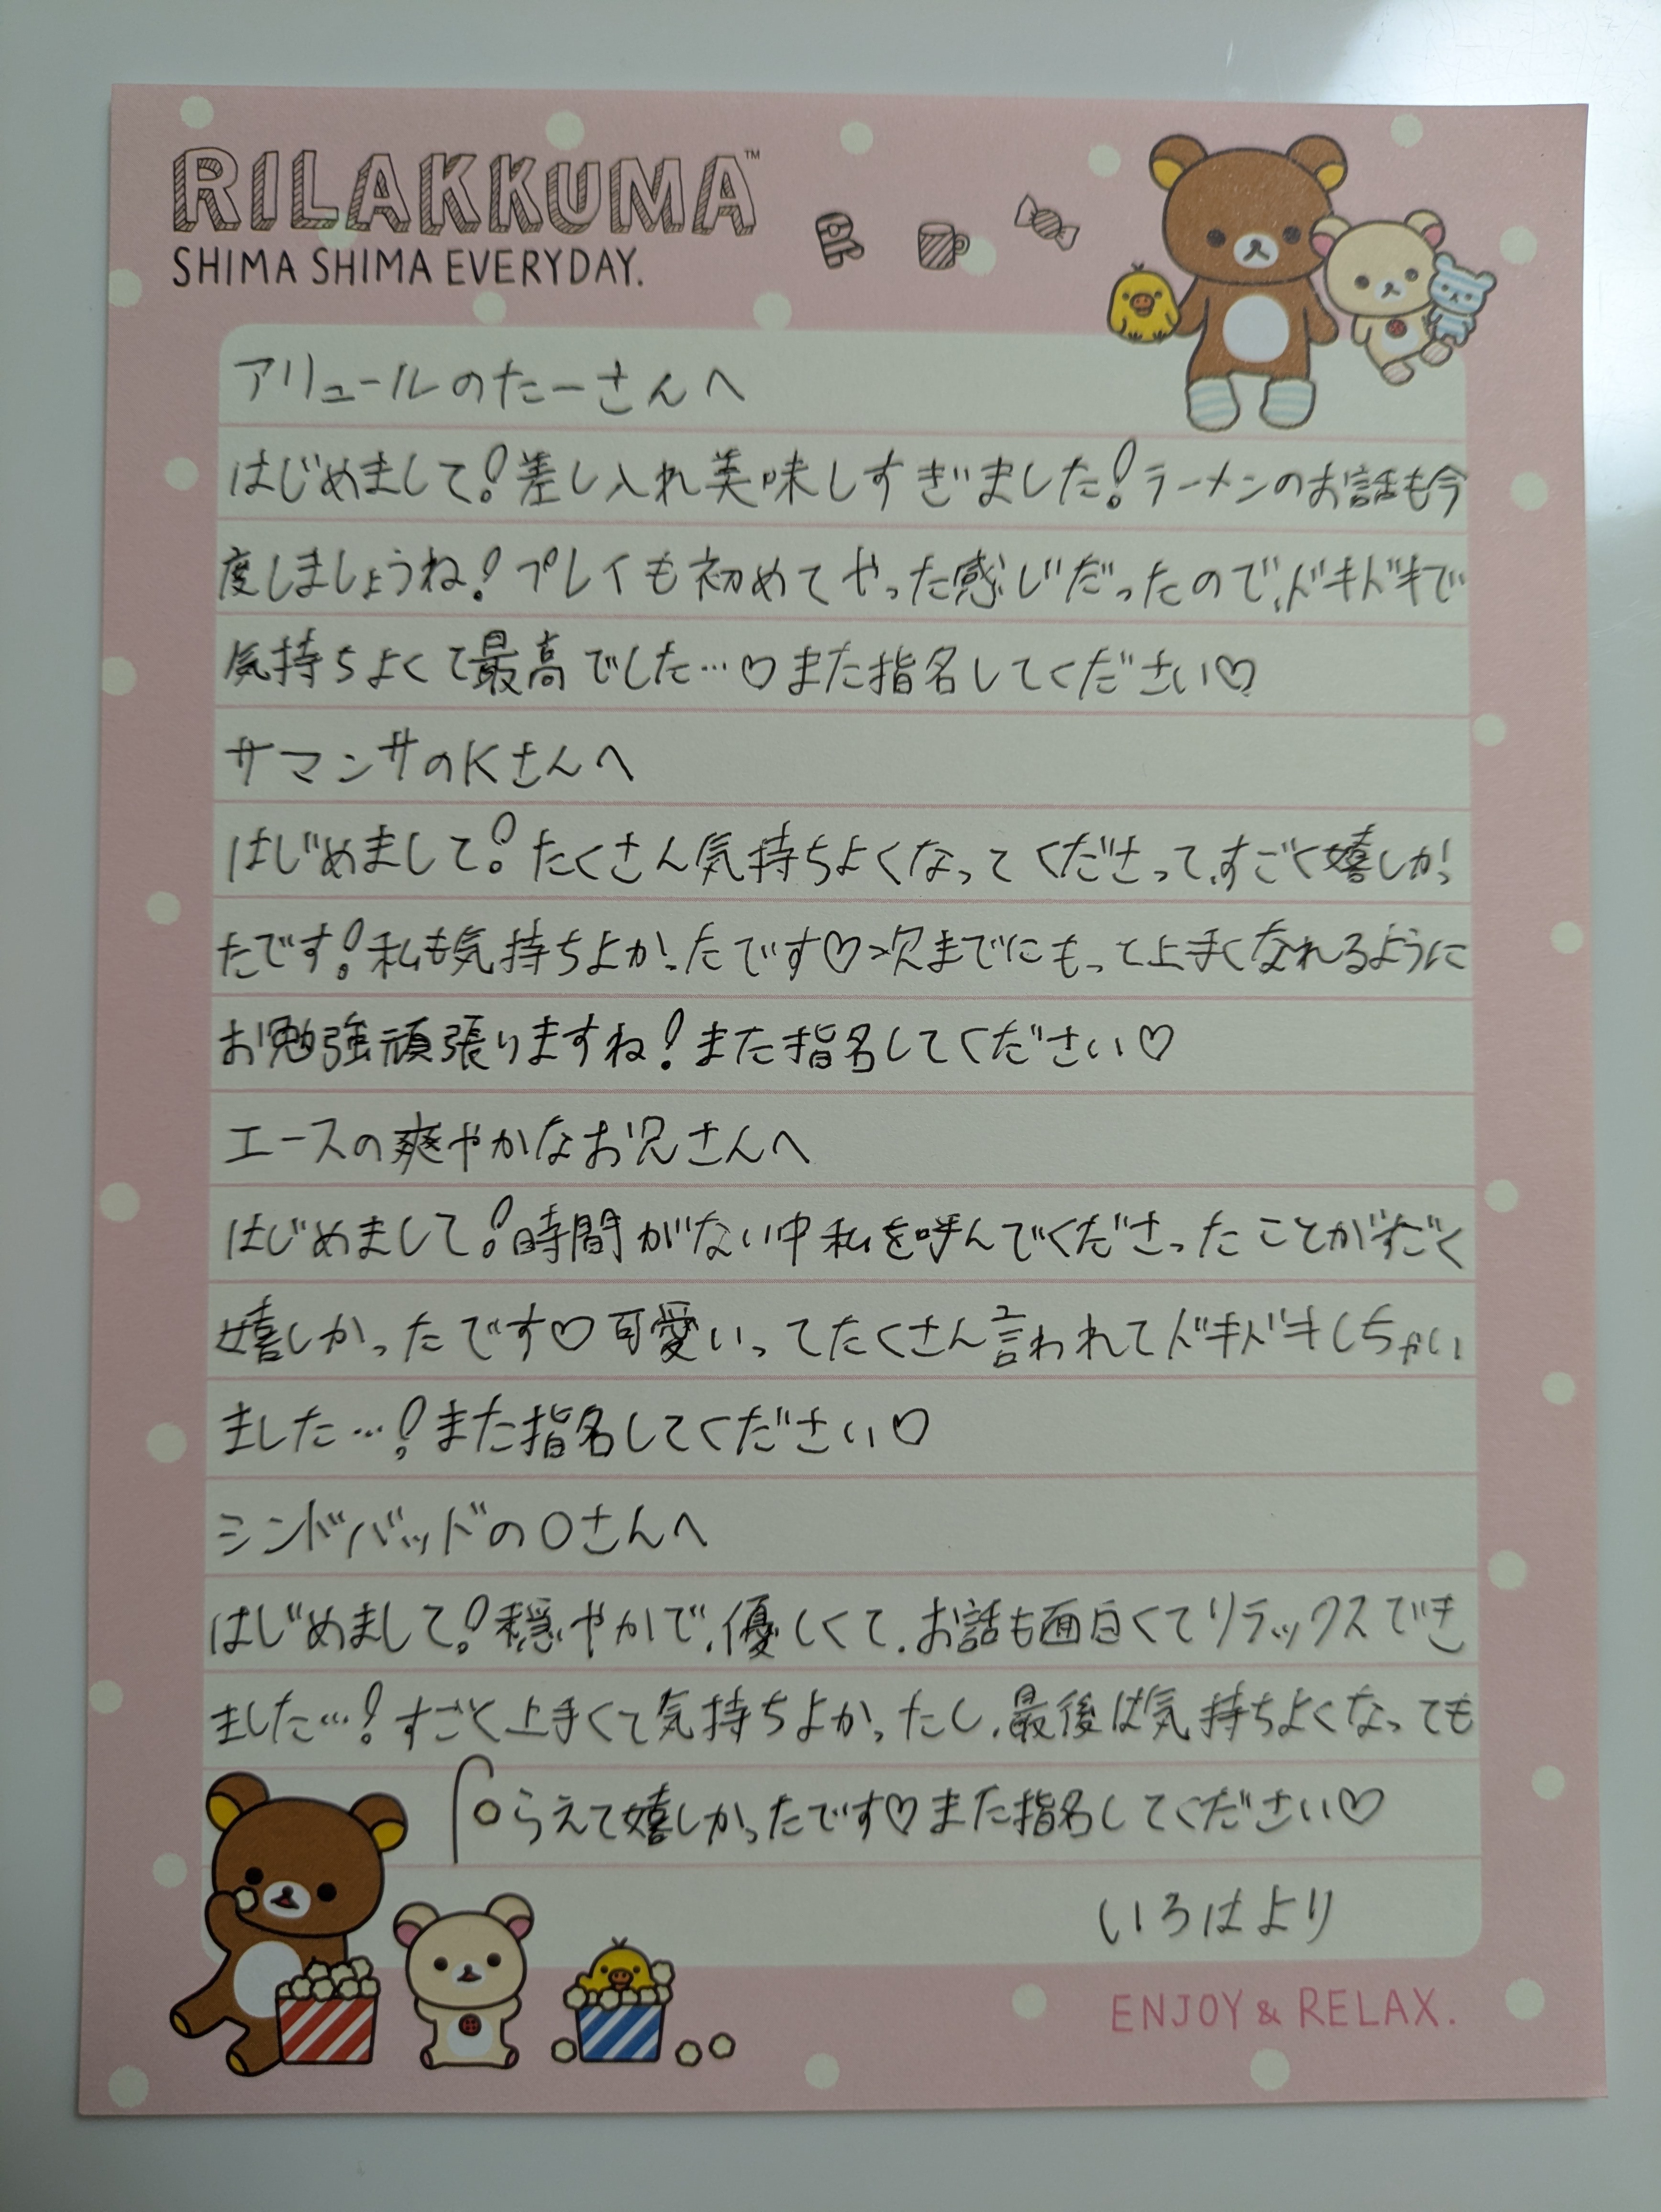 RILAKKUMA™
SHIMA SHIMA EVERYDAY.
アリュールのたーさんへ
はじめまして!差し入れ美味しすぎました!ラーメンのお話も今
度しましょうね!プレイも初めてやった感じだったので、ドキドキで
気持ちよくて最高でした…♡また指名してください♡
サマンサのKさんへ
はじめまして!たくさん気持ちよくなってくださって、すごく嬉しかっ
たです!私も気持ちよかったです♡次までにもっと上手くなれるように
お勉強頑張りますね!また指名してください♡
エースの爽やかなお兄さんへ
はじめまして!時間がない中私を呼んでくださったことがすごく
嬉しかったです♡可愛いってたくさん言われてドキドキしちゃい
ました…!また指名してください♡
シンドバッドのOさんへ
はじめまして!穏やかで、優しくて、お話も面白くてリラックスでき
ました…!すごく上手くて気持ちよかったし、最後は気持ちよくなっても
らえて嬉しかったです♡また指名してください♡
いろはより
ENJOY & RELAX.